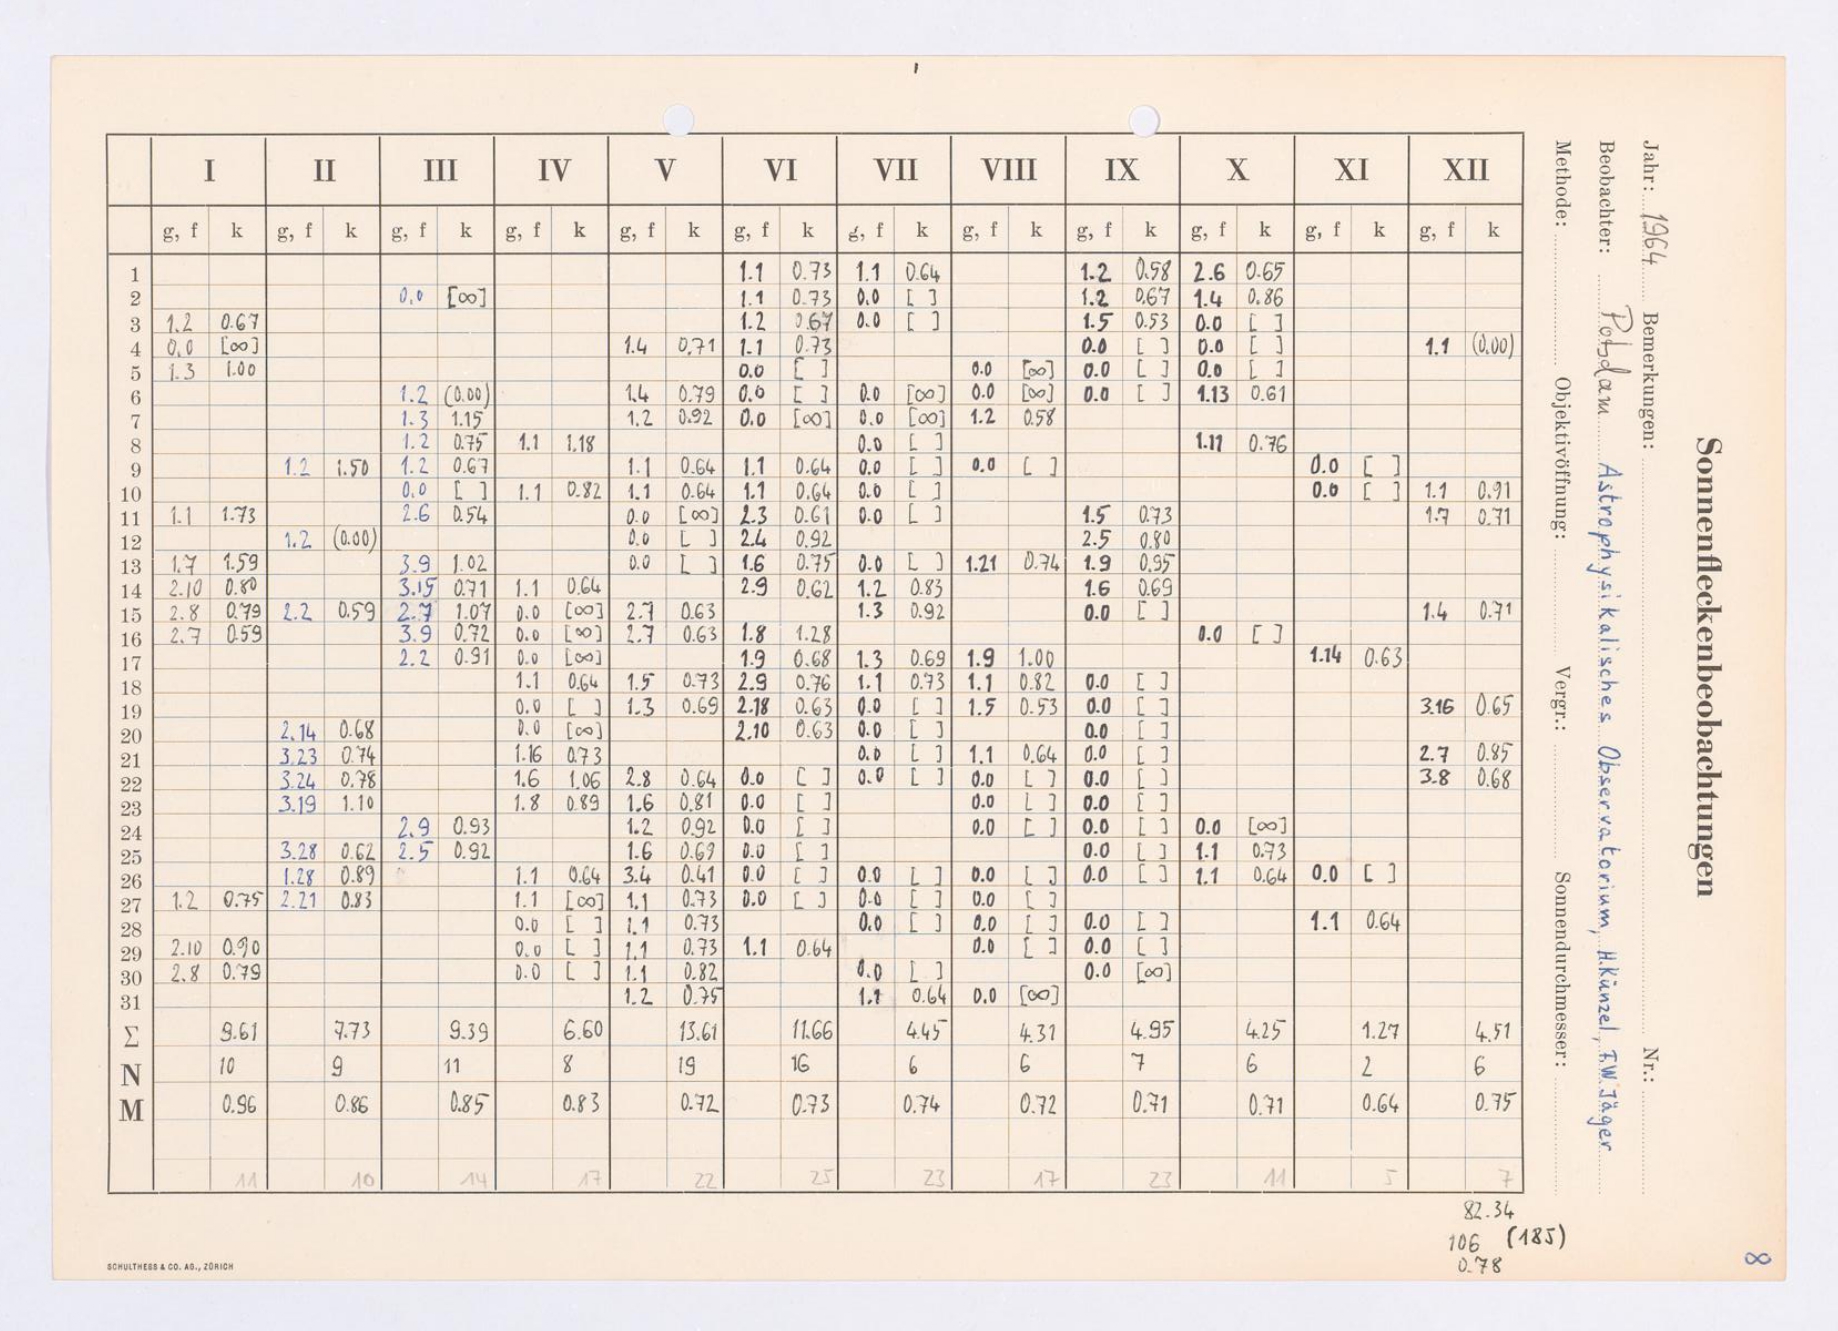 Sonnenfleckenbeobachtungen
Jahr: 1964 Bemerkungen: Nr.:
Beobachter: Potsdam Astrophysikalisches Observatorium, H.Künzel, F.W.Jäger
Methode: Objektivöffnung: Vergr.: Sonnendurchmesser:
I II III IV V VI VII VIII IX X XI XII
g, f k g, f k g, f k g, f k g, f k g, f k g, f k g, f k g, f k g, f k g, f k g, f k
1 1.1 0.73 1.1 0.64 1.2 0.58 2.6 0.65
2 0.0 [∞] 1.1 0.73 0.0 [ ] 1.2 0.67 1.4 0.86
3 1.2 0.67 1.2 0.67 0.0 [ ] 1.5 0.53 0.0 [ ]
4 0.0 [∞] 1.4 0.71 1.1 0.73 0.0 [ ] 0.0 [ ] 1.1 (0.00)
5 1.3 1.00 0.0 [ ] 0.0 [∞] 0.0 [ ] 0.0 [ ]
6 1.2 (0.00) 1.4 0.79 0.0 [ ] 0.0 [∞] 0.0 [∞] 0.0 [ ] 1.13 0.61
7 1.3 1.15 1.2 0.92 0.0 [∞] 0.0 [∞] 1.2 0.58
8 1.2 0.75 1.1 1.18 0.0 [ ] 1.11 0.76
9 1.2 1.50 1.2 0.67 1.1 0.64 1.1 0.64 0.0 [ ] 0.0 [ ] 0.0 [ ]
10 0.0 [ ] 1.1 0.82 1.1 0.64 1.1 0.64 0.0 [ ] 0.0 [ ] 1.1 0.91
11 1.1 1.73 2.6 0.54 0.0 [∞] 2.3 0.61 0.0 [ ] 1.5 0.73 1.7 0.71
12 1.2 (0.00) 0.0 [ ] 2.4 0.92 2.5 0.80
13 1.7 1.59 3.9 1.02 0.0 [ ] 1.6 0.75 0.0 [ ] 1.21 0.74 1.9 0.95
14 2.10 0.80 3.15 0.71 1.1 0.64 2.9 0.62 1.2 0.83 1.6 0.69
15 2.8 0.79 2.2 0.59 2.7 1.07 0.0 [∞] 2.7 0.63 1.3 0.92 0.0 [ ] 1.4 0.71
16 2.7 0.59 3.9 0.72 0.0 [∞] 2.7 0.63 1.8 1.28 0.0 [ ]
17 2.2 0.91 0.0 [∞] 1.9 0.68 1.3 0.69 1.9 1.00 1.14 0.63
18 1.1 0.64 1.5 0.73 2.9 0.76 1.1 0.73 1.1 0.82 0.0 [ ]
19 0.0 [ ] 1.3 0.69 2.18 0.63 0.0 [ ] 1.5 0.53 0.0 [ ] 3.16 0.65
20 2.14 0.68 0.0 [∞] 2.10 0.63 0.0 [ ] 0.0 [ ]
21 3.23 0.74 1.16 0.73 0.0 [ ] 1.1 0.64 0.0 [ ] 2.7 0.85
22 3.24 0.78 1.6 1.06 2.8 0.64 0.0 [ ] 0.0 [ ] 0.0 [ ] 0.0 [ ] 3.8 0.68
23 3.19 1.10 1.8 0.89 1.6 0.81 0.0 [ ] 0.0 [ ] 0.0 [ ]
24 2.9 0.93 1.2 0.92 0.0 [ ] 0.0 [ ] 0.0 [ ] 0.0 [∞]
25 3.28 0.62 2.5 0.92 1.6 0.69 0.0 [ ] 0.0 [ ] 1.1 0.73
26 1.28 0.89 1.1 0.64 3.4 0.41 0.0 [ ] 0.0 [ ] 0.0 [ ] 0.0 [ ] 1.1 0.64 0.0 [ ]
27 1.2 0.75 2.21 0.83 1.1 [∞] 1.1 0.73 0.0 [ ] 0.0 [ ] 0.0 [ ]
28 0.0 [ ] 1.1 0.73 0.0 [ ] 0.0 [ ] 0.0 [ ] 1.1 0.64
29 2.10 0.90 0.0 [ ] 1.1 0.73 1.1 0.64 0.0 [ ] 0.0 [ ]
30 2.8 0.79 0.0 [ ] 1.1 0.82 0.0 [ ] 0.0 [∞]
31 1.2 0.75 1.1 0.64 0.0 [∞]
Σ 9.61 7.73 9.39 6.60 13.61 11.66 4.45 4.31 4.95 4.25 1.27 4.51
N 10 9 11 8 19 16 6 6 7 6 2 6
M 0.96 0.86 0.85 0.83 0.72 0.73 0.74 0.72 0.71 0.71 0.64 0.75
11 10 14 17 22 25 23 17 23 11 5 7
82.34
106 (185)
0.78
8
SCHULTHESS & CO. AG., ZÜRICH